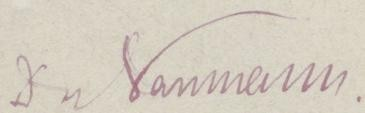 Dr Naumann.